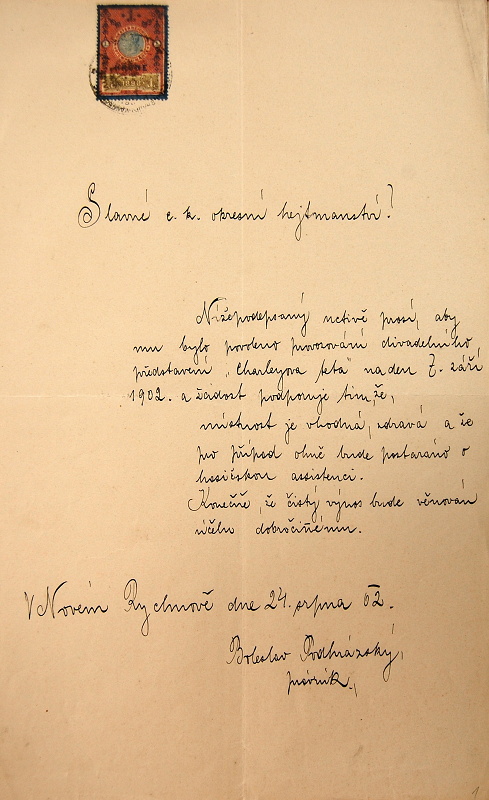 Slavné c. k. okresní hejtmanství!
Nížepodepsaný uctivě prosí, aby
mu bylo povoleno provozování divadelního
představení „Charleyova teta" na den 7. září
1902. a žádost podporuje tím, že,
místnost je vhodná, zdravá a že
pro případ ohně bude postaráno o
hasičskou assistenci.
Konečně, že čistý výnos bude věnován
účelu dobročinnému.
V Novém Rychnově dne 24. srpna 02.
Boleslav Podhrázský,
právník.
1